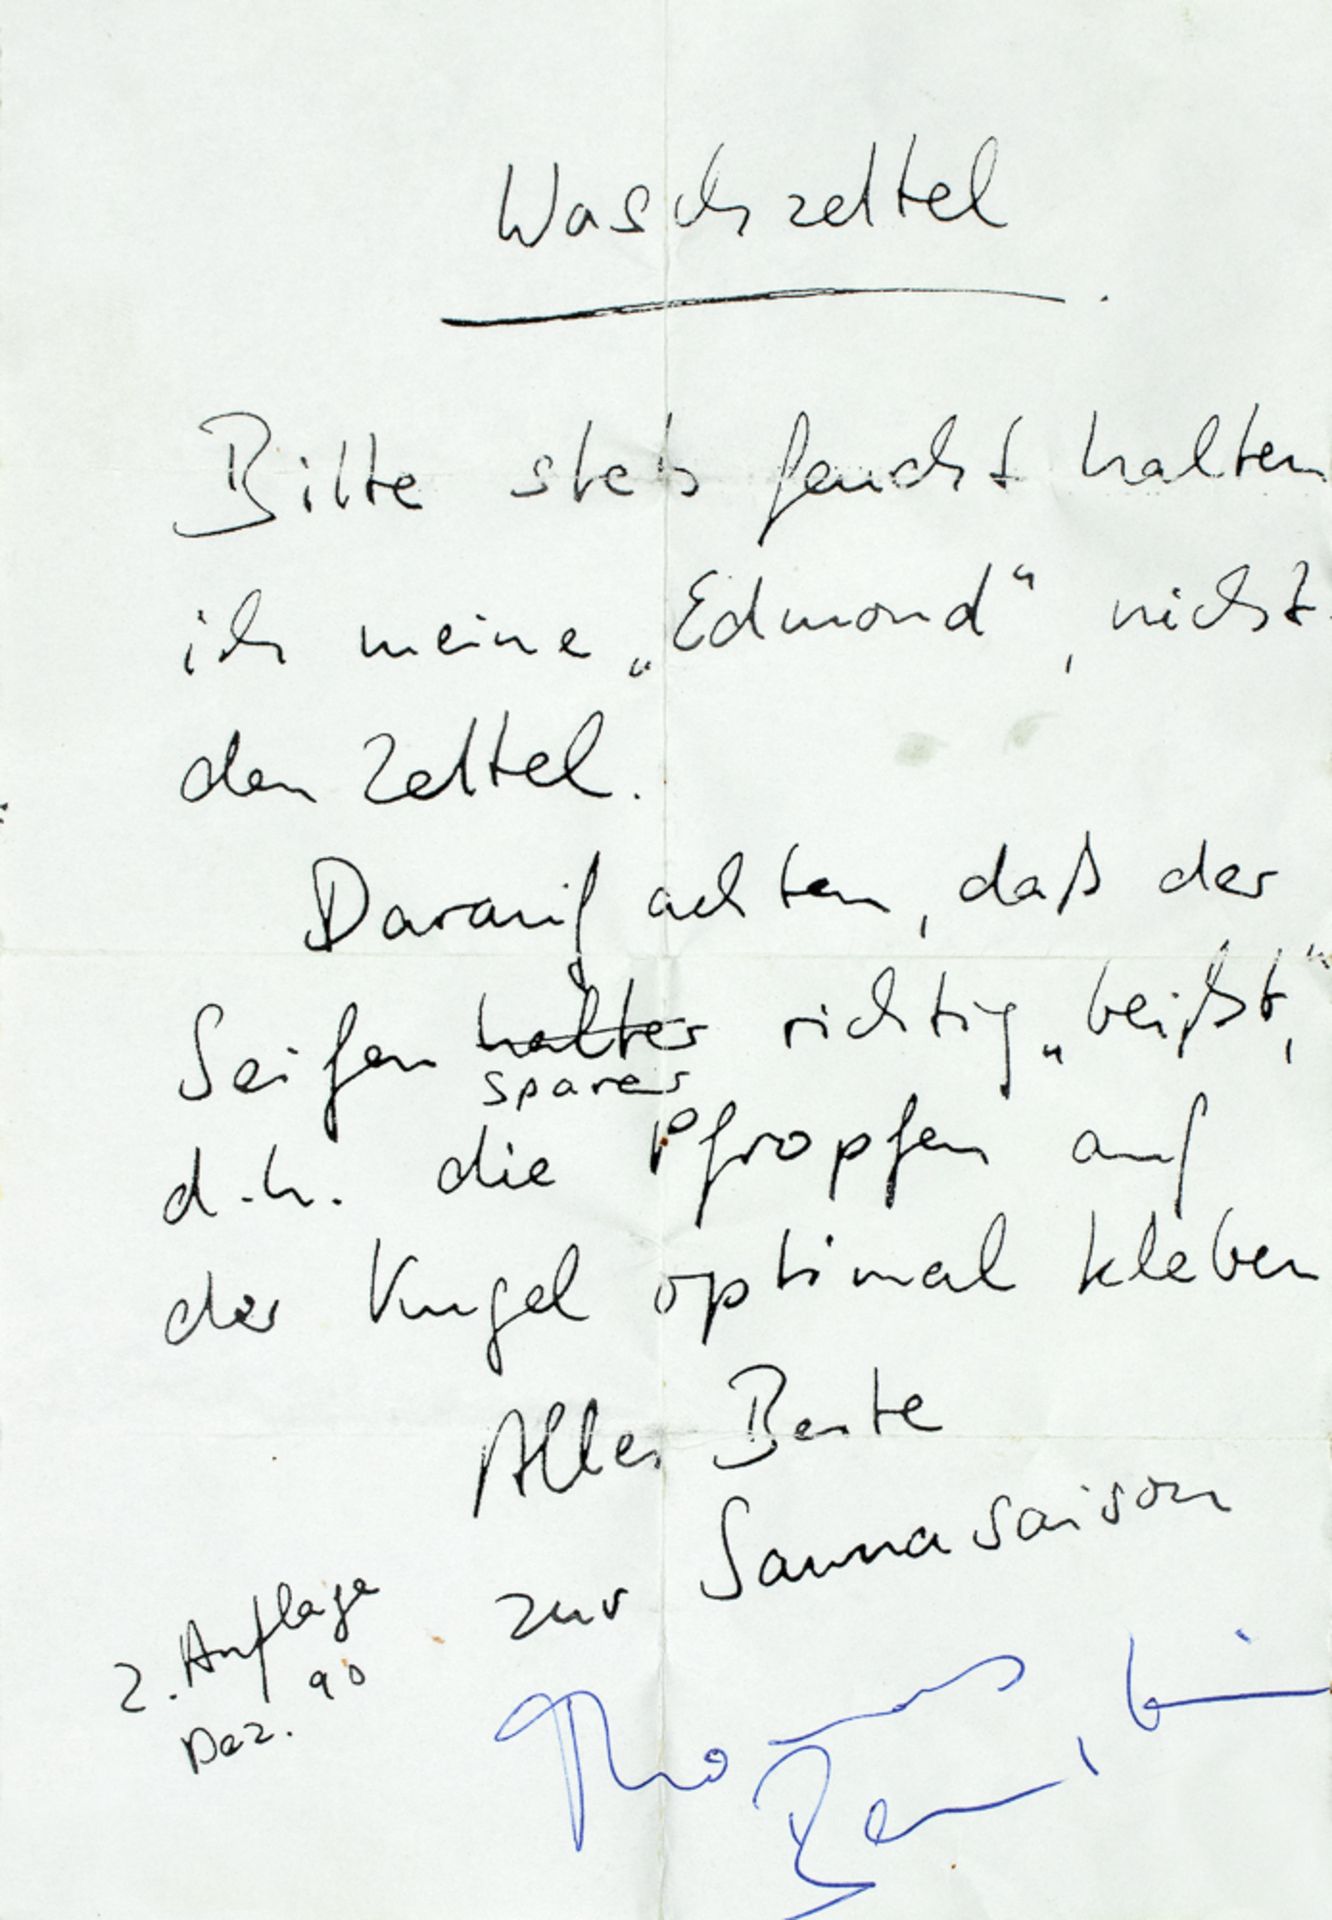 Waschzettel
Bitte stets feucht halten
ich meine „Edmond“, nicht
den Zettel.
Darauf achten, daß der
Seifen halter richtig „beißt,“
sparer
d.h. die Pfropfen auf
der Kugel optimal kleben
Alles Beste
zur Saunasaison
2. Auflage
Dez. 90
Thomas